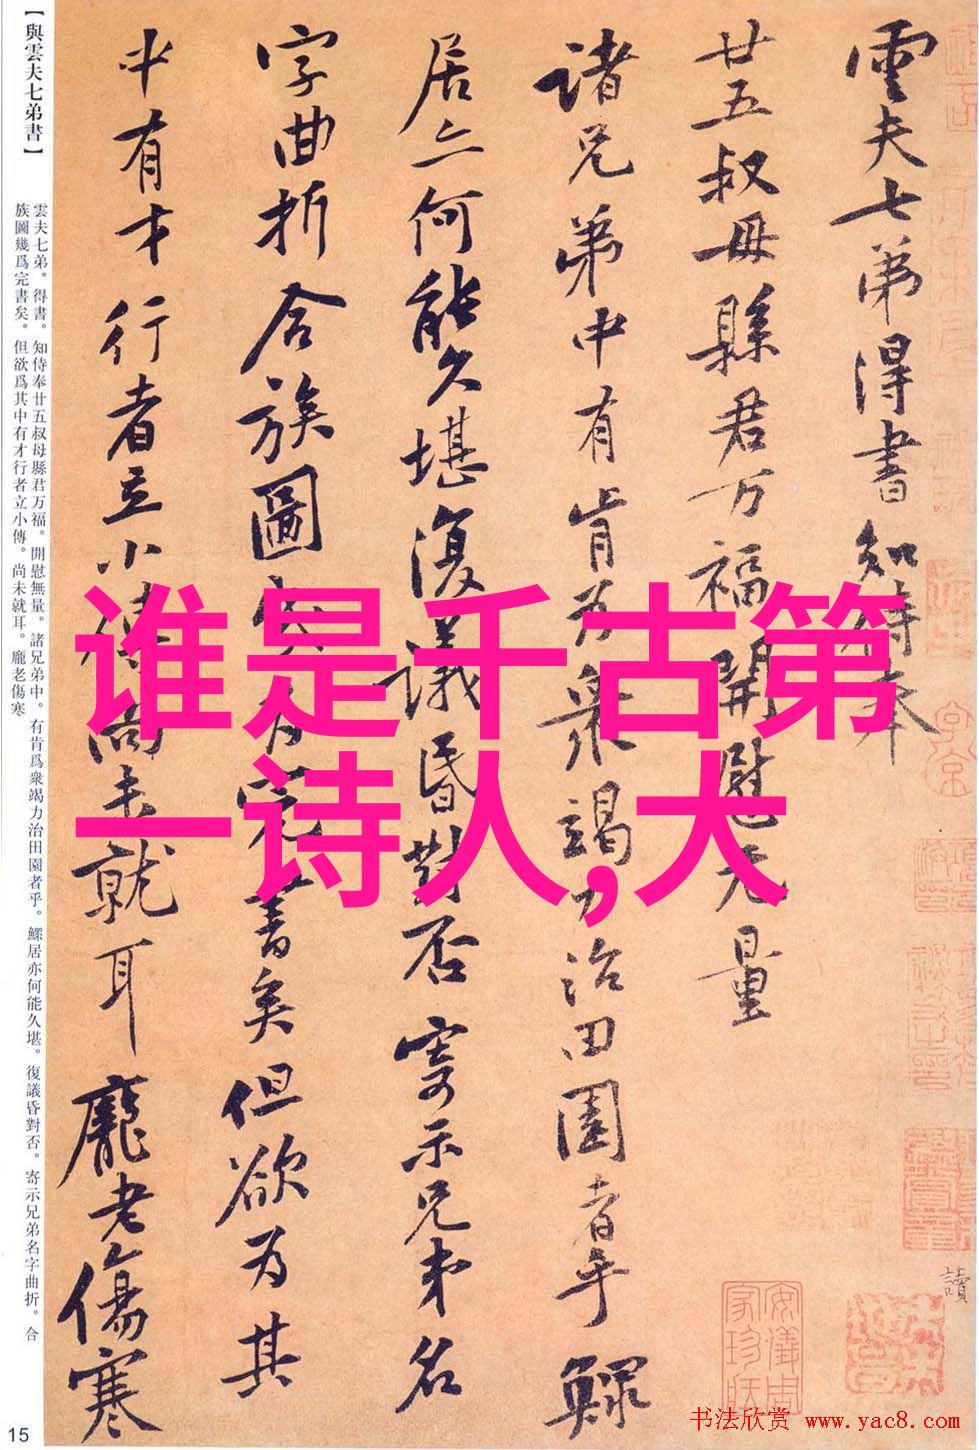 谁是千古第
一诗人,大
雲夫七弟得書知侍奉
廿五叔母縣君万福開慰无量
諸兄弟中有肯为衆竭力治田園者乎鰥
居亦何能久堪復議昏對否寄示兄弟名
字曲折合族圖幾为完書矣但欲为其
中有才行者立小傳尚未就耳龐老傷寒
讀
安儀周家珍藏
【與雲夫七弟書】
雲夫七弟。得書。知侍奉廿五叔母縣君万福。開慰無量。諸兄弟中。有肯爲衆竭力治田園者乎。鰥居亦何能久堪。復議昏對否。寄示兄弟名字曲折。合
族圖幾爲完書矣。但欲爲其中有才行者立小傳。尚未就耳。龐老傷寒
15
书法欣赏 www.yac8.com